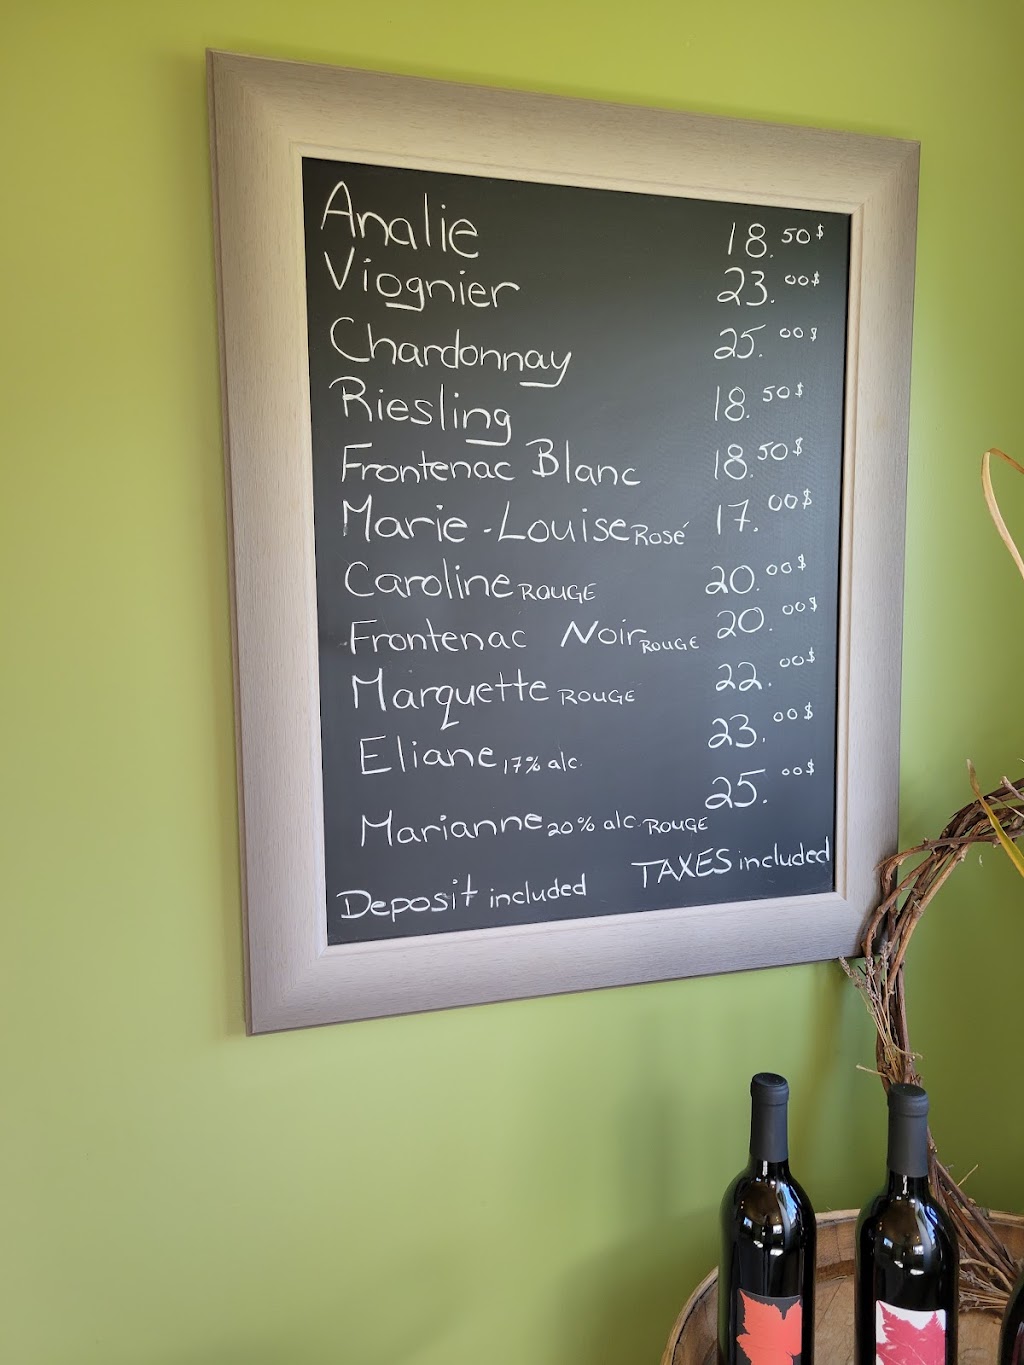 Analie 18.50$
Viognier 23.00$
Chardonnay 25.00$
Riesling 18.50$
Frontenac Blanc 18.50$
Marie-Louise Rosé 17.00$
Caroline ROUGE 20.00$
Frontenac Noir ROUGE 20.00$
Marquette ROUGE 22.00$
Eliane 17% alc. 23.00$
Marianne 20% alc. ROUGE 25.00$
TAXES included
Deposit included